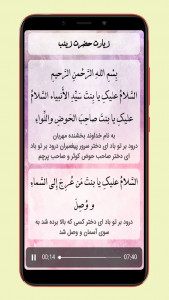 زیارت حضرت زینب
بِسْمِ اللهِ الرَّحْمنِ الرَّحیمِ
السَّلامُ عَلَیکِ یا بِنتَ سَیِّدِ الأَنبِیاءِ السَّلامُ
عَلَیکِ یا بِنتَ صاحِبَ الحَوضِ وَاللِّواءِ
به نام خداوند بخشنده مهربان
درود بر تو باد ای دختر سرور پیغمبران درود بر تو باد
ای دختر صاحب حوض کوثر و صاحب پرچم
السَّلامُ عَلَیکِ یا بِنتَ مَن عُرِجَ إلی السَّماءِ
وَ وُصِلَ
درود بر تو باد ای دختر کسی که بالا برده شد به
سوی آسمان و وصل شد
00:14 07:40